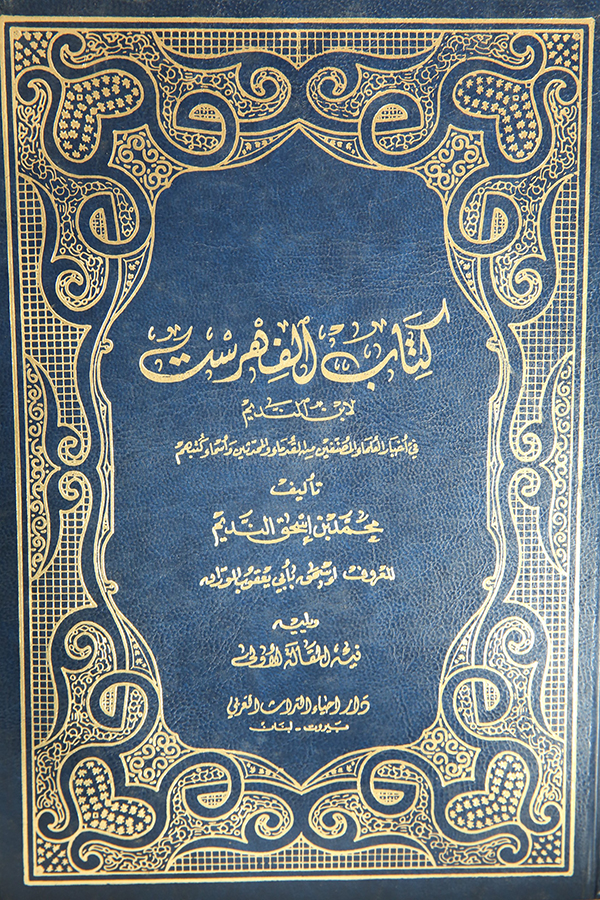 كتاب الفهرست
لابن النديم
في أخبار العلماء المصنفين من القدماء والمحدثين وأسماء كتبهم
تأليف
محمد بن إسحق النديم
المعروف إسحق بأبي يعقوب الوراق
ويليه
فيه المقالة الأولى
دار احياء التراث العربي
بيروت - لبنان